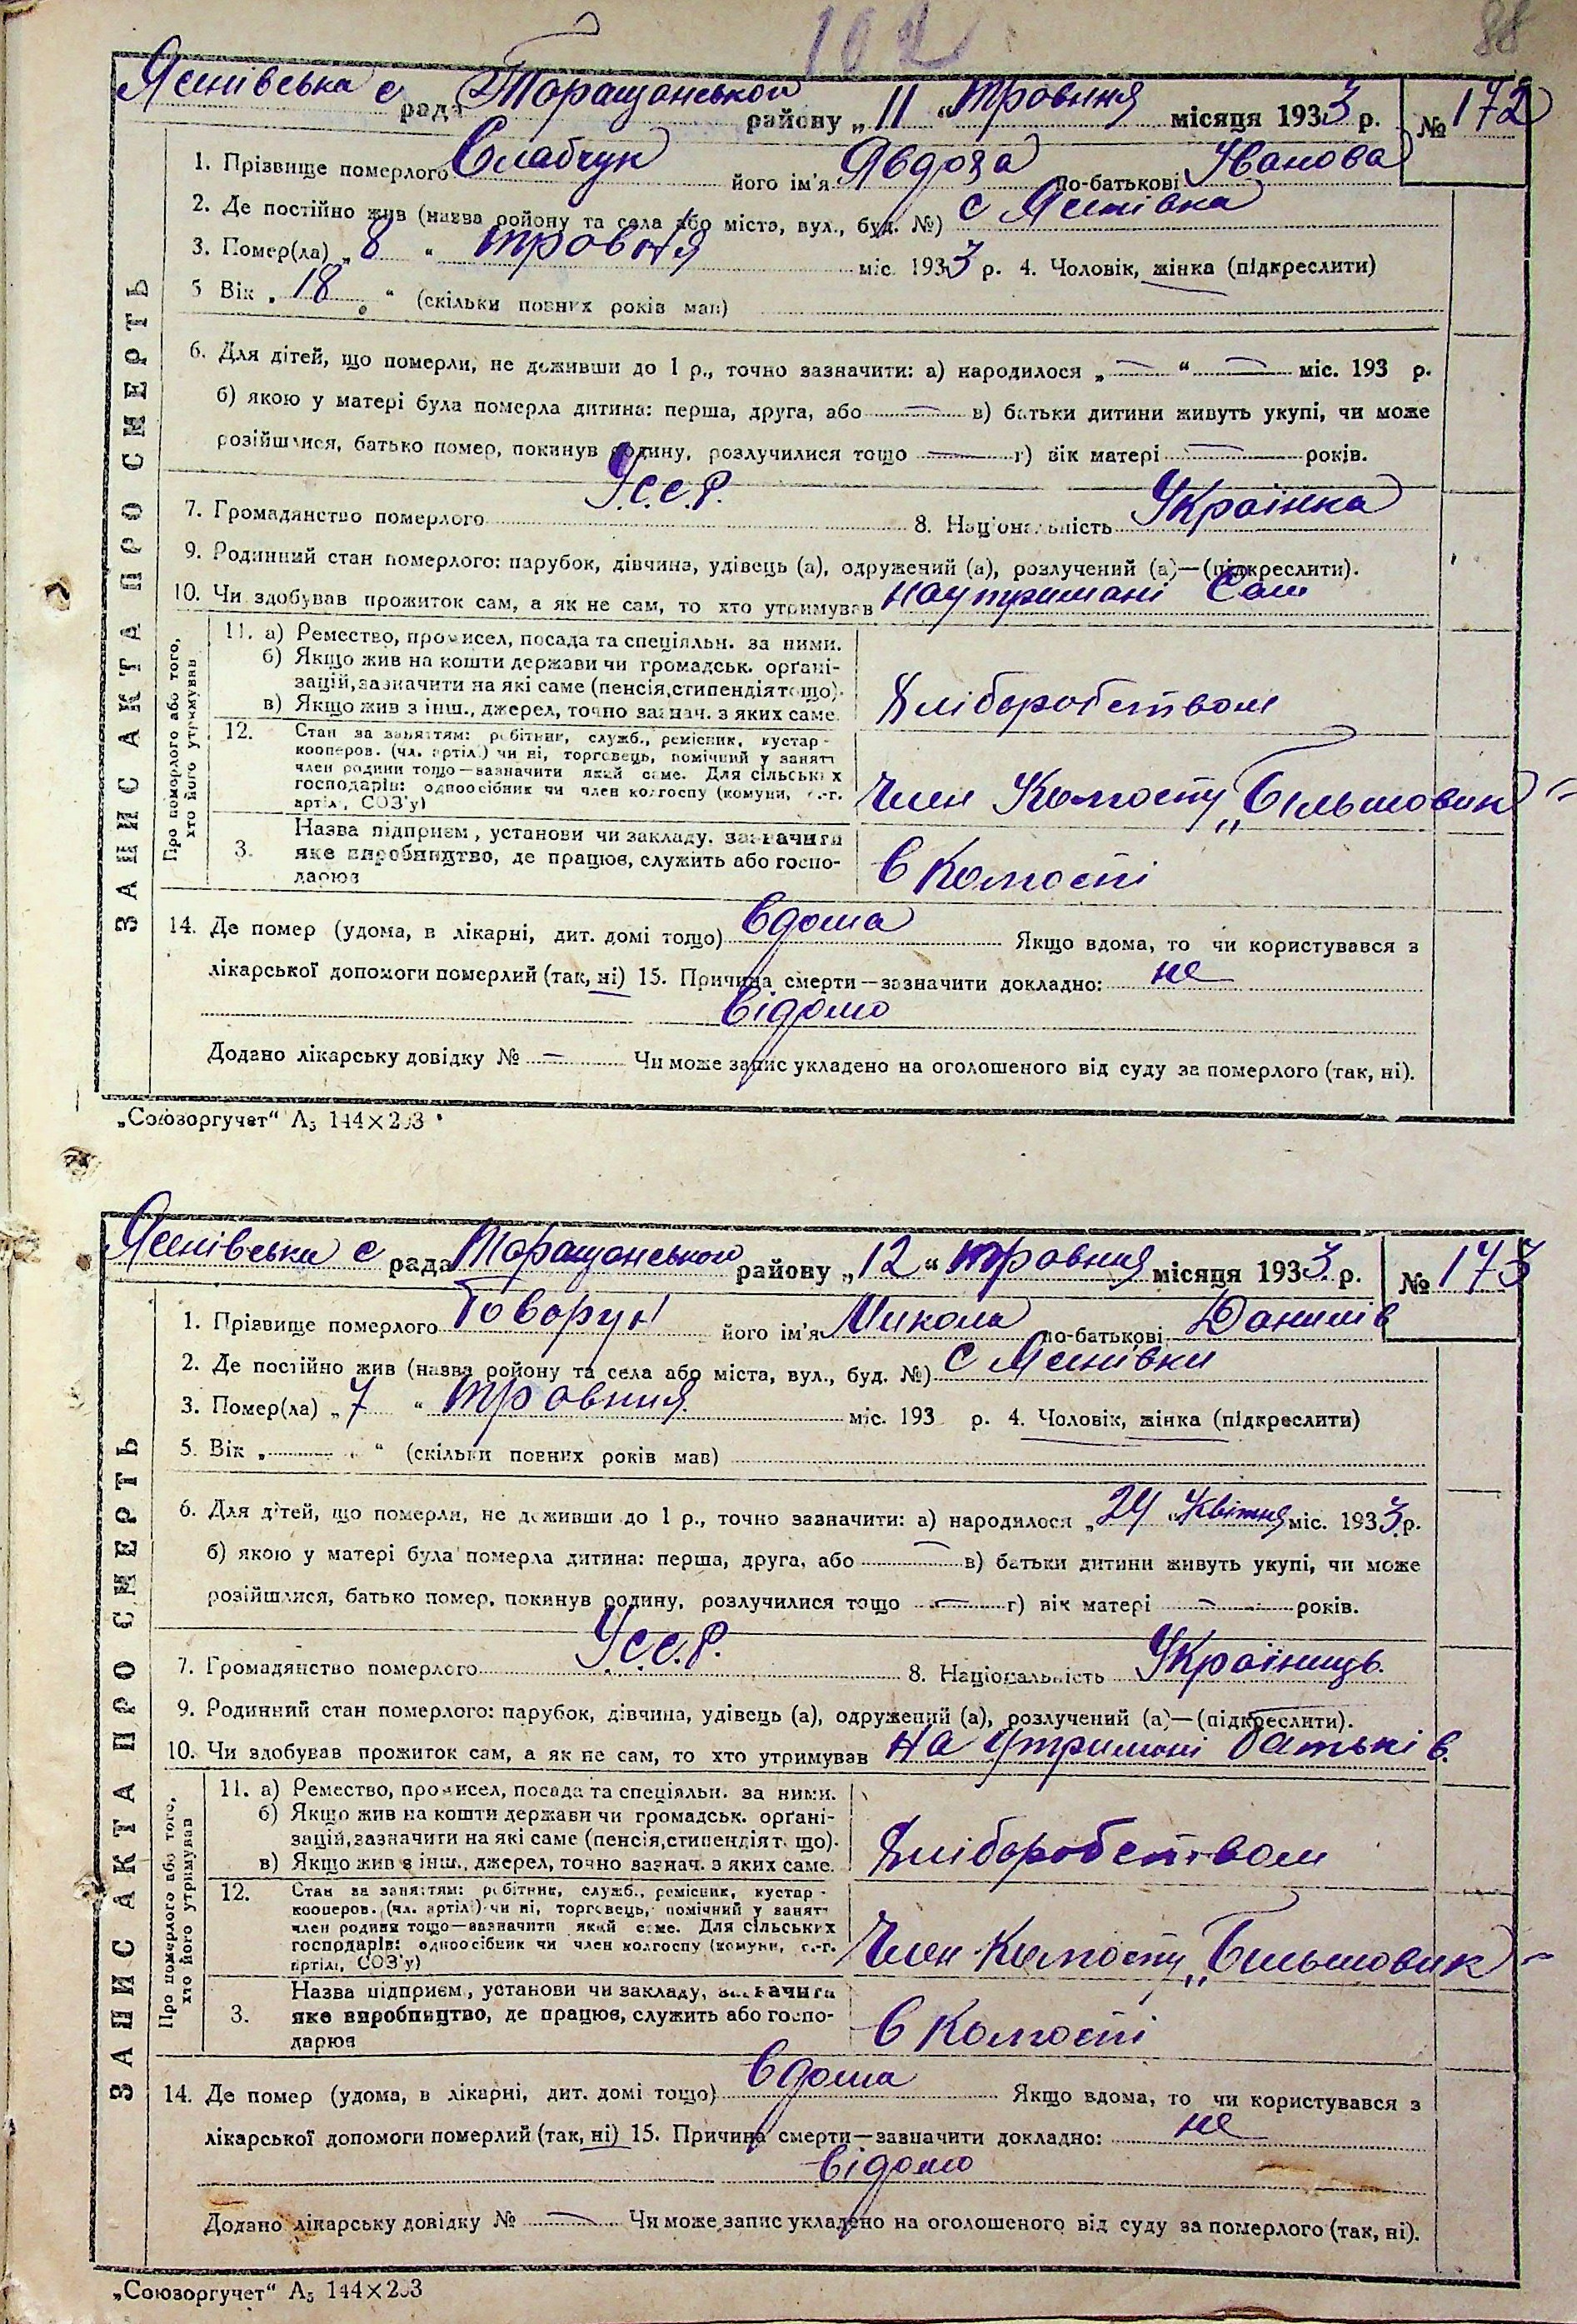 102
88
Яснівська с рада Таращанського району „11“ травня місяця 1933 р. № 172
1. Прізвище померлого Слабчук його ім'я Явдоха по-батькові Іванова
2. Де постійно жив (назва району та села або міста, вул., буд. №) с Яснівка
3. Помер(ла) „8“ травня міс. 1933 р. 4. Чоловік, жінка (підкреслити)
5 Вік „18“ (скільки повних років мав)
6. Для дітей, що померли, не доживши до 1 р., точно зазначити: а) народилося „—“ — міс. 193 р.
б) якою у матері була померла дитина: перша, друга, або — в) батьки дитини живуть укупі, чи може
розійшлися, батько помер, покинув родину, розлучилися тощо — г) вік матері — років.
7. Громадянство померлого У.С.С.Р. 8. Національність Українка
9. Родинний стан померлого: парубок, дівчина, удівець (а), одружений (а), розлучений (а)—(підкреслити).
10. Чи здобував прожиток сам, а як не сам, то хто утримував на утримані Сам
Про померлого або того, хто його утримував
11. а) Ремество, промисел, посада та спеціяльн. за ними.
б) Якщо жив на кошти держави чи громадськ. органі-
зацій, зазначити на які саме (пенсія, стипендія тощо).
в) Якщо жив з інш., джерел, точно зазнач. з яких саме.
Хліборобством
12. Стан за заняттям: робітник, служб., ремісник, кустар-
кооперов. (чл. артілі) чи ні, торговець, помічний у занят.
член родини тощо—зазначити який саме. Для сільських
господарів: одноосібник чи член колгоспу (комуни, с.-г.
артілі, СОЗ'у)
Член Колгоспу „Більшовик“
3. Назва підприєм, установи чи закладу, зазначити
яке виробництво, де працює, служить або госпо-
дарює
в Колгоспі
14. Де помер (удома, в лікарні, дит. домі тощо) вдома Якщо вдома, то чи користувався з
лікарської допомоги померлий (так, ні) 15. Причина смерти—зазначити докладно: не
відомо
Додано лікарську довідку № — Чи може запис укладено на оголошеного від суду за померлого (так, ні).
ЗАПИС АКТА ПРО СМЕРТЬ
„Союзоргучет“ А₅ 144×203
Яснівська с рада Таращанського району „12“ травня місяця 1933 р. № 173
1. Прізвище померлого Говорун його ім'я Микола по-батькові Данилів
2. Де постійно жив (назва району та села або міста, вул., буд. №) с Яснівки
3. Помер(ла) „7“ травня міс. 193 р. 4. Чоловік, жінка (підкреслити)
5. Вік „ “ (скільки повних років мав)
6. Для дітей, що померли, не доживши до 1 р., точно зазначити: а) народилося „24“ квітня міс. 1933 р.
б) якою у матері була померла дитина: перша, друга, або — в) батьки дитини живуть укупі, чи може
розійшлися, батько помер, покинув родину, розлучилися тощо — г) вік матері — років.
7. Громадянство померлого У.С.С.Р. 8. Національність Українць.
9. Родинний стан померлого: парубок, дівчина, удівець (а), одружений (а), розлучений (а)—(підкреслити).
10. Чи здобував прожиток сам, а як не сам, то хто утримував на утримані батьків.
Про померлого або того, хто його утримував
11. а) Ремество, промисел, посада та спеціяльн. за ними.
б) Якщо жив на кошти держави чи громадськ. органі-
зацій, зазначити на які саме (пенсія, стипендія т. що).
в) Якщо жив з інш., джерел, точно зазнач. з яких саме.
Хліборобством
12. Стан за заняттям: робітник, служб., ремісник, кустар-
кооперов. (чл. артілі) чи ні, торговець, помічний у занят.
член родини тощо—зазначити який саме. Для сільських
господарів: одноосібник чи член колгоспу (комуни, с.-г.
артілі, СОЗ'у)
Член Колгоспу „Більшовик“
3. Назва підприєм, установи чи закладу, зазначити
яке виробництво, де працює, служить або госпо-
дарює
в Колгоспі
14. Де помер (удома, в лікарні, дит. домі тощо) вдома Якщо вдома, то чи користувався з
лікарської допомоги померлий (так, ні) 15. Причина смерти—зазначити докладно: не
відомо
Додано лікарську довідку № — Чи може запис укладено на оголошеного від суду за померлого (так, ні).
ЗАПИС АКТА ПРО СМЕРТЬ
„Союзоргучет“ А₅ 144×203